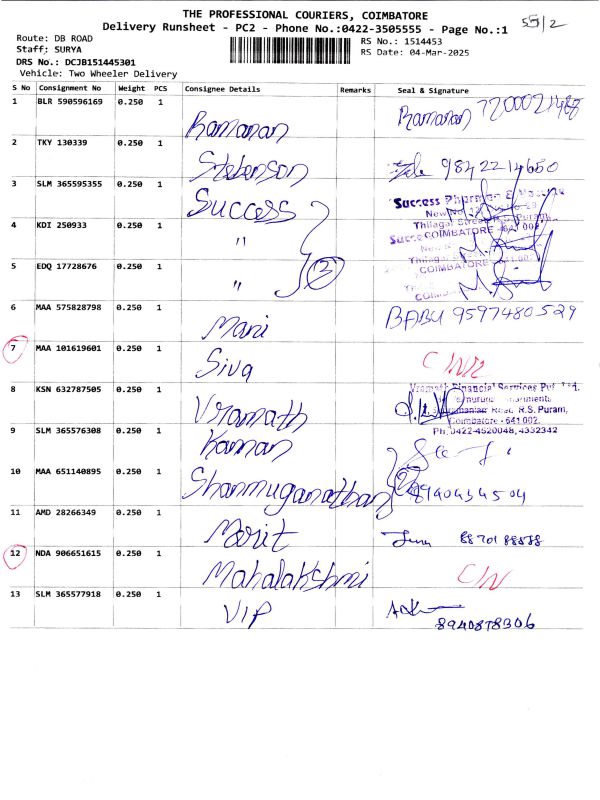 THE PROFESSIONAL COURIERS, COIMBATORE
Delivery Runsheet - PC2 - Phone No.:0422-3505555 - Page No.:1
Route: DB ROAD
Staff: SURYA
DRS No.: DCJB151445301
Vehicle: Two Wheeler Delivery
RS No.: 1514453
RS Date: 04-Mar-2025
S No Consignment No Weight PCS Consignee Details Remarks Seal & Signature
1 BLR 590596169 0.250 1 Ramanan Ramanan
2 TKY 130339 0.250 1 Stebenson 9842214650
3 SLM 365595355 0.250 1 Success
4 KDI 250933 0.250 1 "
COIMBATORE
5 EDQ 17728676 0.250 1 " 3
6 MAA 575828798 0.250 1 Mani BABU 9597480529
7 MAA 101619601 0.250 1 Siva
8 KSN 632787505 0.250 1 Vramath
Financial Services Pvt
R.S. Puram,
Coimbatore - 641 002.
Ph: 0422-4520048, 4332342
9 SLM 365576308 0.250 1 Raman
10 MAA 651140895 0.250 1 Shanmuganathan 2
11 AMD 28266349 0.250 1 Merit
12 NDA 906651615 0.250 1 Mahalakshmi C/N
13 SLM 365577918 0.250 1 VIP
8940878306